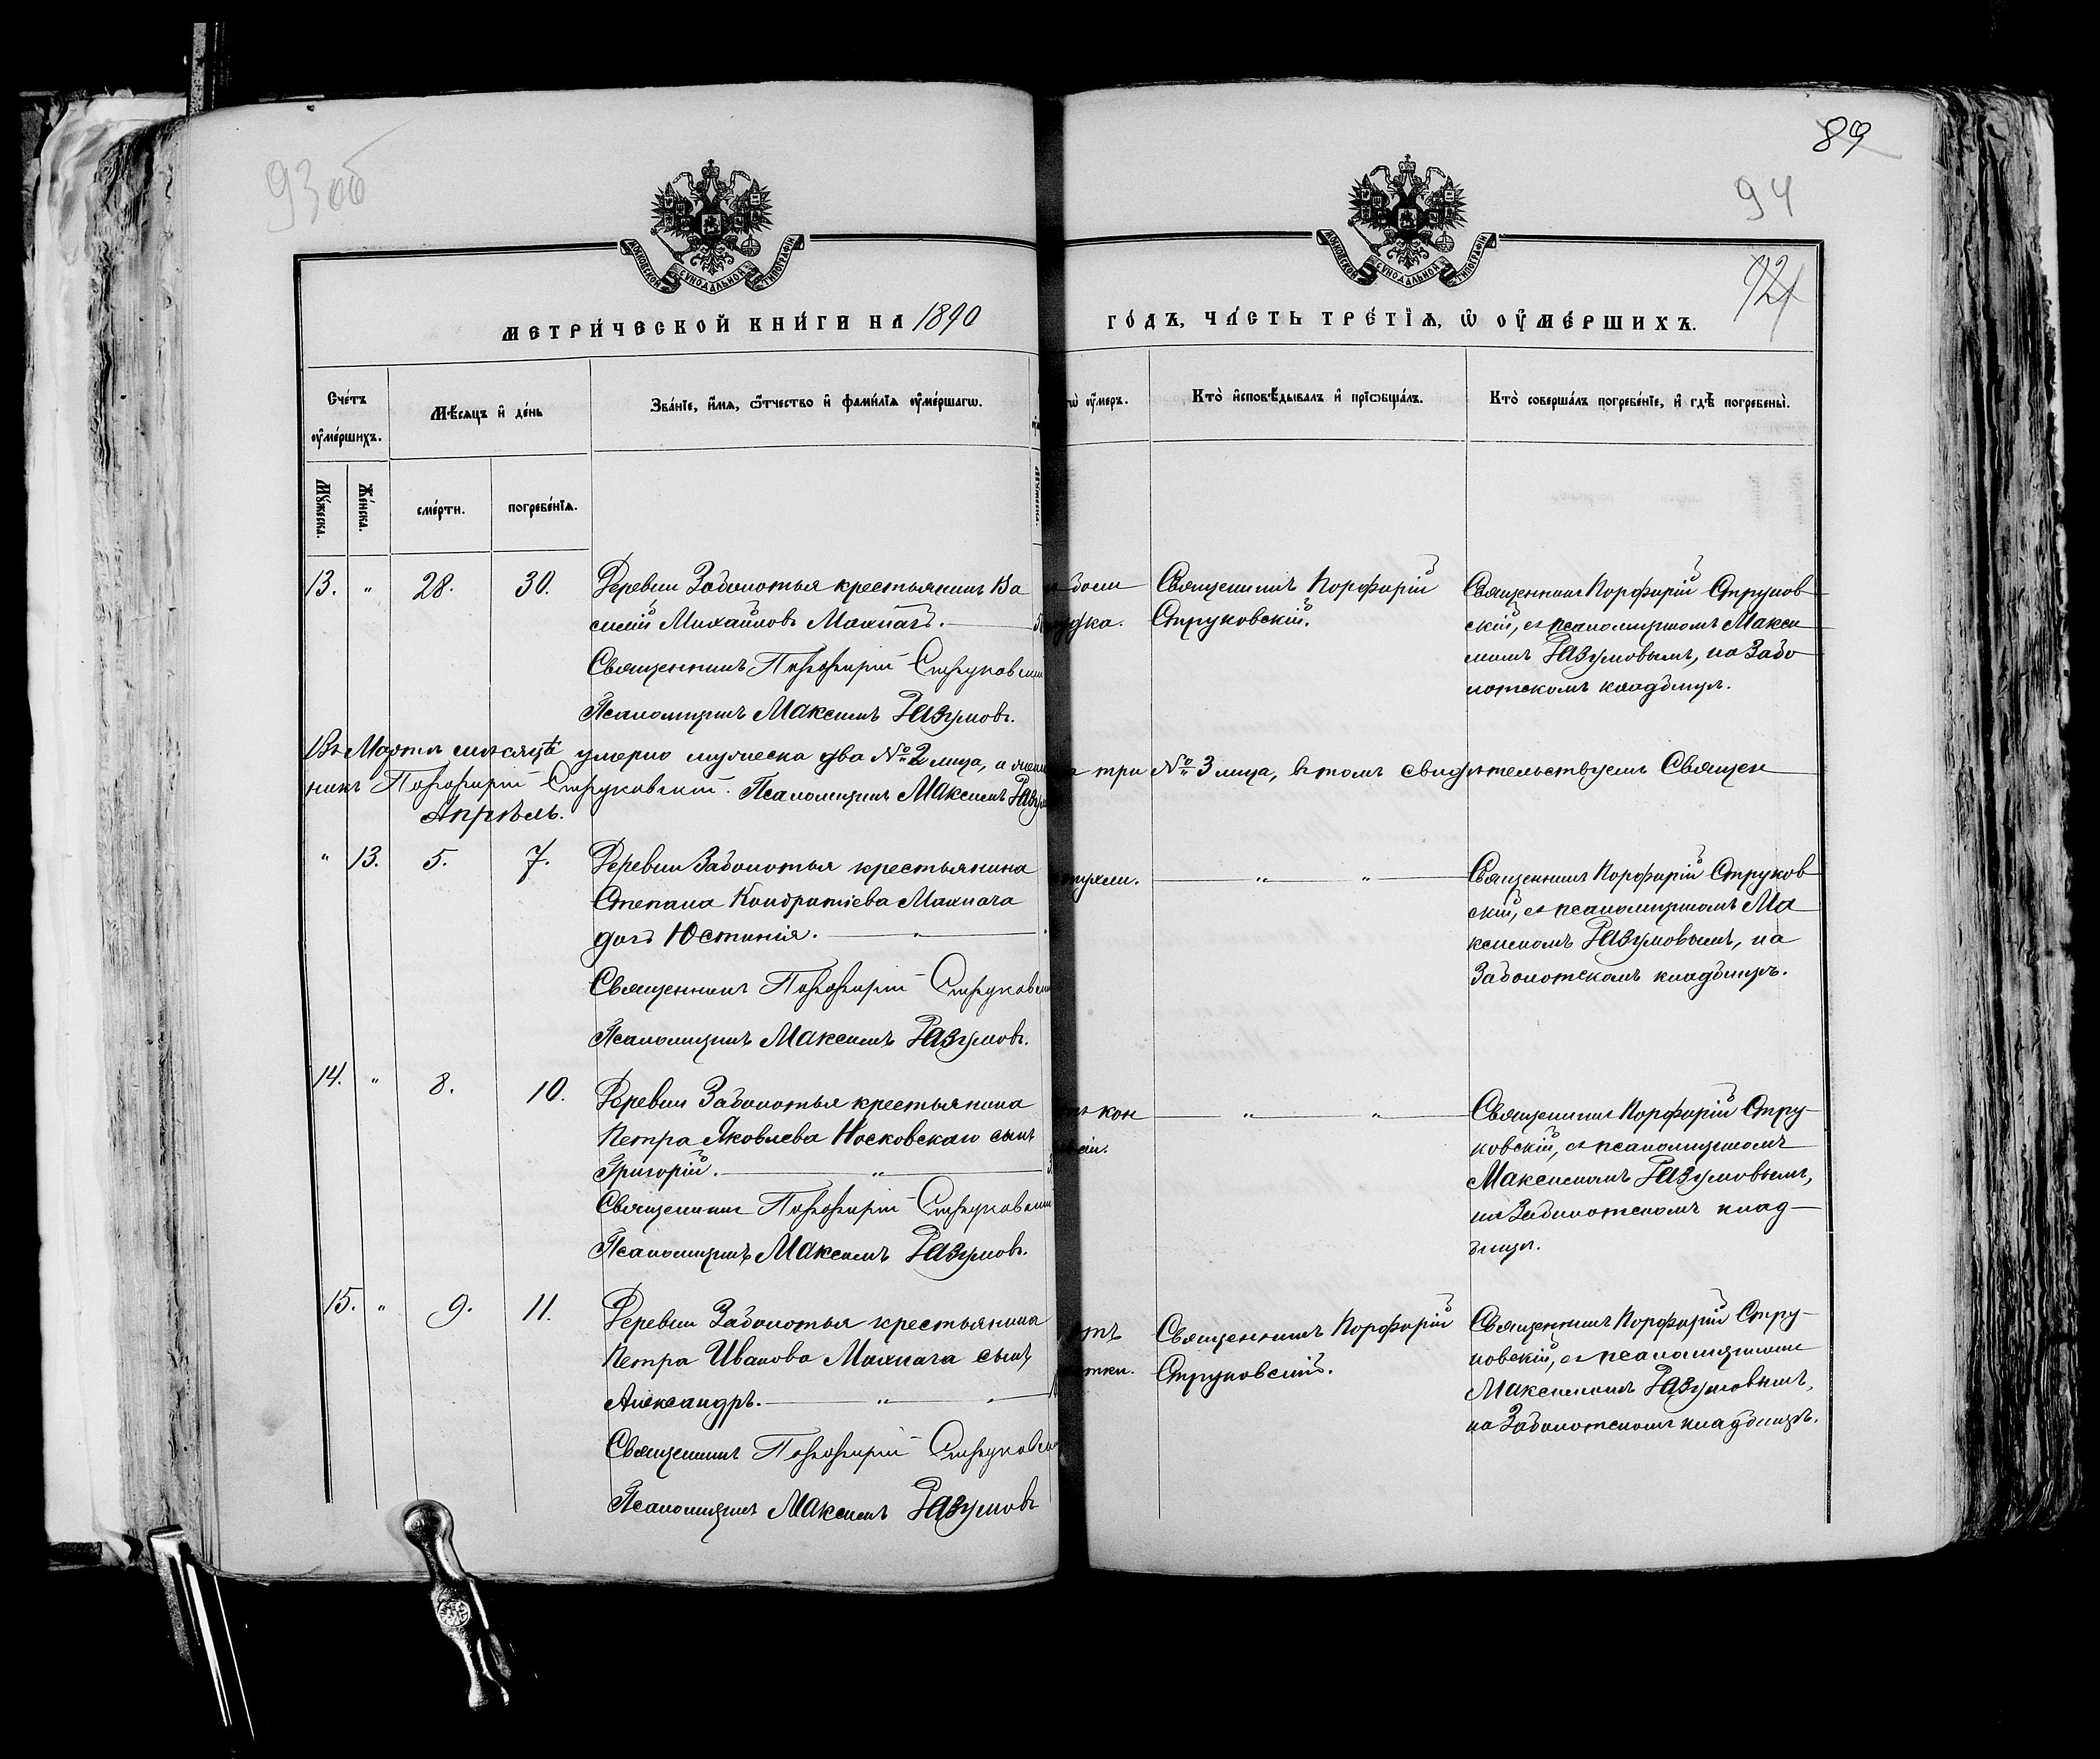 93 об
89
94
92
МОСКОВСКОЙ СѴНОДАЛЬНОЙ ТИПОГРАФІИ
МОСКОВСКОЙ СѴНОДАЛЬНОЙ ТИПОГРАФІИ
МЕТРИ́ЧЕСКОЙ КНИ́ГИ НА 1890
ГО́ДЪ, ЧА́СТЬ ТРЕ́ТІѦ, Ѡ҆ ОУ҆МЕ́РШИХЪ.
Сче́тъ оу҆ме́ршихъ.
Мѣ́сѧцъ и҆ де́нь
Зва́нїе, и҆́мѧ, ѻ҆́тчество и҆ фами́лїѧ оу҆ме́ршагѡ.
оу҆́меръ.
Кто̀ и҆сповѣ́дывалъ и҆ прїѡбща́лъ.
Кто̀ соверша́лъ погребе́нїе, и҆ гдѣ̀ погребены̀.
Мꙋ́жеска.
Же́нска.
сме́рти.
погребе́нїѧ.
13. " 28. 30. Деревни Заболотья крестьянинъ Ва
силій Михайловъ Махначъ.
Священникъ Порфирій Струковскій
Псаломщикъ Максимъ Разумовъ.
Священникъ Порфирій
Струковскій.
Священникъ Порфирій Струков
скій, съ псаломщикомъ Макси
момъ Разумовымъ, на Забо
лотскомъ кладбищѣ.
Въ Мартѣ мѣсяцѣ умерло мужеска два № 2 лица, а женс
ка три № 3 лица, въ томъ свидѣтельствуемъ Священ
никъ Порфирій Струковскій. Псаломщикъ Максимъ Разу
Апрѣль.
" 13. 5. 7. Деревни Заболотья крестьянина
Степана Кондратіева Махнача
дочь Юстинія. "
Священникъ Порфирій Струковскій
Псаломщикъ Максимъ Разумовъ.
" "
Священникъ Порфирій Струков
скій, съ псаломщикомъ Ма
ксимомъ Разумовымъ, на
Заболотскомъ кладбищѣ.
14. " 8. 10. Деревни Заболотья крестьянина
Петра Яковлева Носковскаго сынъ
Григорій. "
Священникъ Порфирій Струковскій
Псаломщикъ Максимъ Разумовъ.
кон
" "
Священникъ Порфирій Стру-
ковскій, съ псаломщикомъ
Максимомъ Разумовымъ,
на Заболотскомъ клад-
бищѣ.
15. " 9. 11. Деревни Заболотья крестьянина
Петра Иванова Махнача сынъ
Александръ. "
Священникъ Порфирій Струковскій
Псаломщикъ Максимъ Разумовъ
Священникъ Порфирій
Струковскій.
Священникъ Порфирій Стру-
ковскій, съ псаломщикомъ
Максимомъ Разумовымъ,
на Заболотскомъ кладбищѣ.